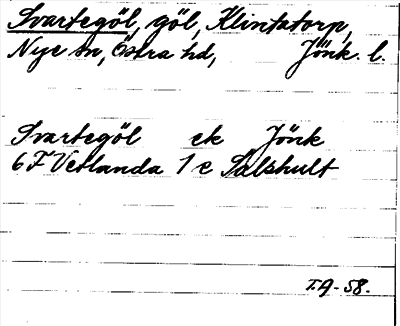 Svartegöl, göl, Klintatorp,
Nye sn, Östra hd, Jönk. l.
Svartegöl ek Jönk
6 F Vetlanda 1 e Salshult
T.A - 58.